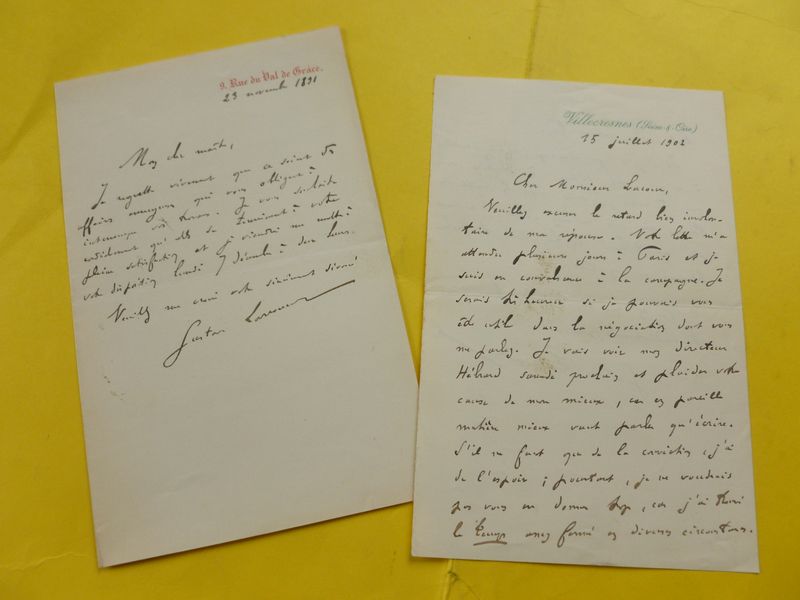 9. Rue du Val de Grâce.
23 novembre 1891
Mon cher maître,
Je regrette vivement que ce soient des
affaires ennuyeuses qui vous obligent à
interrompre vos travaux. Je vous souhaite
cordialement qu'elles se terminent à votre
pleine satisfaction et je viendrai me mettre à
votre disposition lundi 7 décembre à deux heures.
Veuillez me croire votre sincèrement dévoué
Gustave Larroumet
Villecresnes (Seine & Oise)
15 juillet 1902
Cher Monsieur Lacour,
Veuillez excuser le retard bien involon-
taire de ma réponse. Votre lettre m'a
attendu plusieurs jours à Paris et je
suis en convalescence à la campagne. Je
serais très heureux si je pouvais vous
être utile dans la négociation dont vous
me parlez. Je vais voir mon directeur
Hébrard samedi prochain et plaider votre
cause de mon mieux, car en pareille
matière mieux vaut parler qu'écrire.
S'il ne faut que de la conviction, j'ai
de l'espoir ; pourtant, je ne voudrais
pas vous en donner trop, car j'ai trouvé
le Temps assez fermé en diverses circonstances.